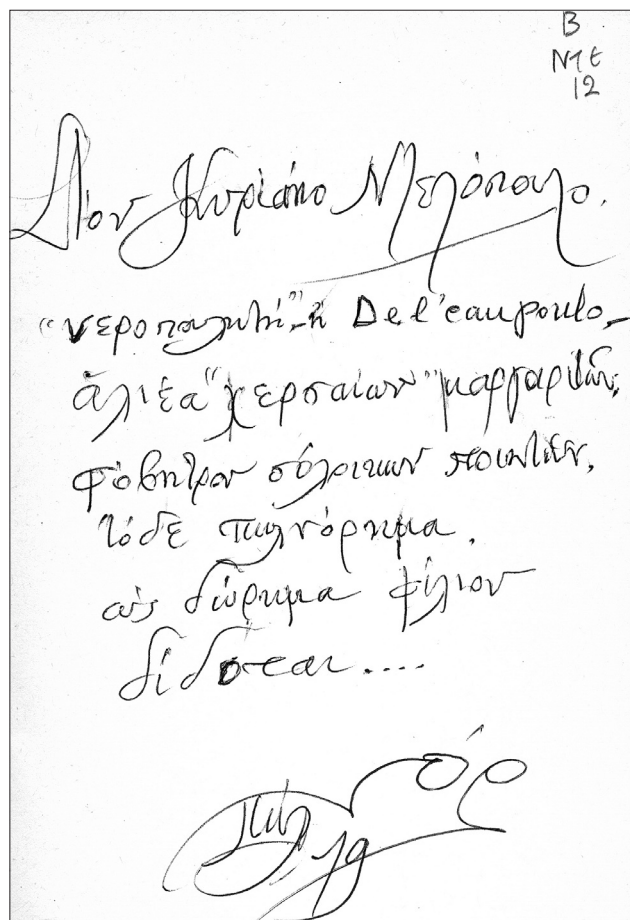 Β
ΝΤΕ
12
Στον Κυριάκο Ντελόπουλο.
"νεροπουλητή"-ή De l'eaupoulo-
ἁλιέα "χερσαίων" μαργαριτῶν,
φόβητρον ποιητῶν,
τόδε
ὡς δώρημα φίλιον
δίδοται....